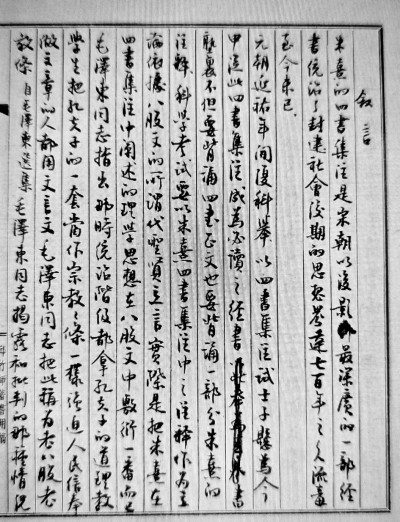 叙言
朱熹的四书集注是宋朝以后影响最深广的一部经
书统治了封建社会後期的思想界達七百年之久流毒
至今未已
元朝延祐年间復科舉以四书集注試士子懸為令
甲從此四书集注成為必讀之经书
不但要背诵四书正文也要背诵一部分朱熹的
注释科学考試要以朱熹四书集注中之注释作为立
论依據八股文的所谓代聖賢立言實際是把朱熹在
四书集注中阐述的理学思想在八股文中敷衍一番而已
毛澤東同志指出那時统治階级都拿孔夫子的道理教
学生把孔夫子的一套当作宗教教條一樣强迫人民信奉
做文章的人都用文言文毛澤東同志把此稱为老八股老
教條自毛澤東選集毛澤東同志揭露和批判的那種情況